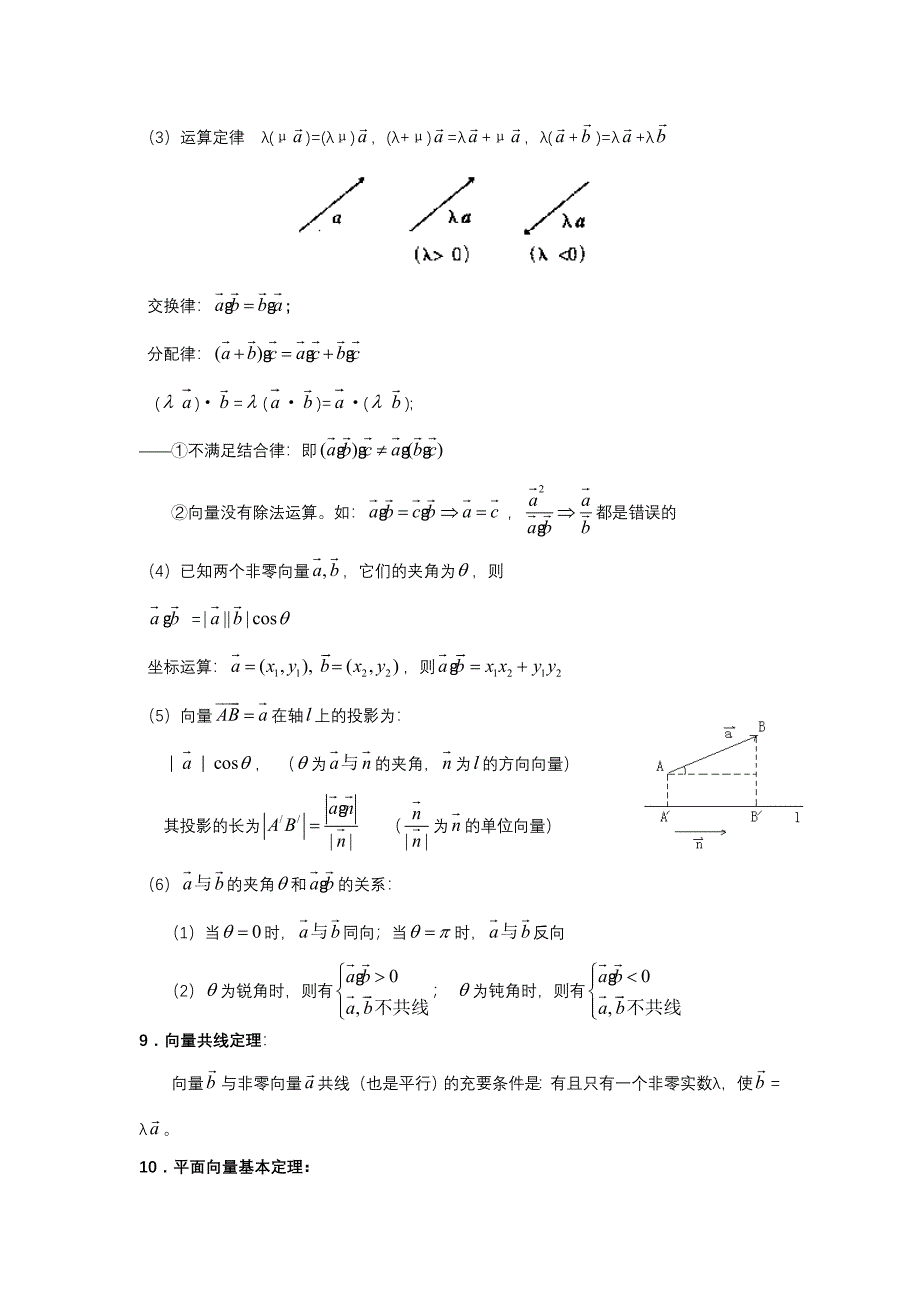 （3）运算定律 λ(μ\vec{a})=(λμ)\vec{a}，(λ+μ)\vec{a}=λ\vec{a}+μ\vec{a}，λ(\vec{a}+\vec{b})=λ\vec{a}+λ\vec{b}
a λa λa
(λ> 0) (λ <0)
交换律：\vec{a}g\vec{b}=\vec{b}g\vec{a}；
分配律：(\vec{a}+\vec{b})g\vec{c}=\vec{a}g\vec{c}+\vec{b}g\vec{c}
(λ\vec{a})·\vec{b}=λ(\vec{a}·\vec{b})=\vec{a}·(λ\vec{b});
——①不满足结合律：即(\vec{a}g\vec{b})g\vec{c}≠\vec{a}g(\vec{b}g\vec{c})
②向量没有除法运算。如：\vec{a}g\vec{b}=\vec{c}g\vec{b}⇒\vec{a}=\vec{c}，\frac{\vec{a}^2}{\vec{a}g\vec{b}}⇒\frac{\vec{a}}{\vec{b}}都是错误的
（4）已知两个非零向量\vec{a},\vec{b}，它们的夹角为θ，则
\vec{a}g\vec{b} =|\vec{a}||\vec{b}|cosθ
坐标运算：\vec{a}=(x_1,y_1),\vec{b}=(x_2,y_2)，则\vec{a}g\vec{b}=x_1x_2+y_1y_2
（5）向量\overrightarrow{AB}=\vec{a}在轴l上的投影为：
｜\vec{a}｜cosθ，（θ为\vec{a}与\vec{n}的夹角，\vec{n}为l的方向向量）
其投影的长为|A^/B^/|=\frac{|\vec{a}g\vec{n}|}{|\vec{n}|} （\frac{\vec{n}}{|\vec{n}|}为\vec{n}的单位向量）
B
\vec{a}
A
A′ B′ l
\vec{n}
（6）\vec{a}与\vec{b}的夹角θ和\vec{a}g\vec{b}的关系：
（1）当θ=0时，\vec{a}与\vec{b}同向；当θ=π时，\vec{a}与\vec{b}反向
（2）θ为锐角时，则有{\vec{a}g\vec{b}>0 \vec{a},\vec{b}不共线； θ为钝角时，则有{\vec{a}g\vec{b}<0 \vec{a},\vec{b}不共线
9．向量共线定理：
向量\vec{b}与非零向量\vec{a}共线（也是平行）的充要条件是：有且只有一个非零实数λ，使\vec{b}=
λ\vec{a}。
10．平面向量基本定理：